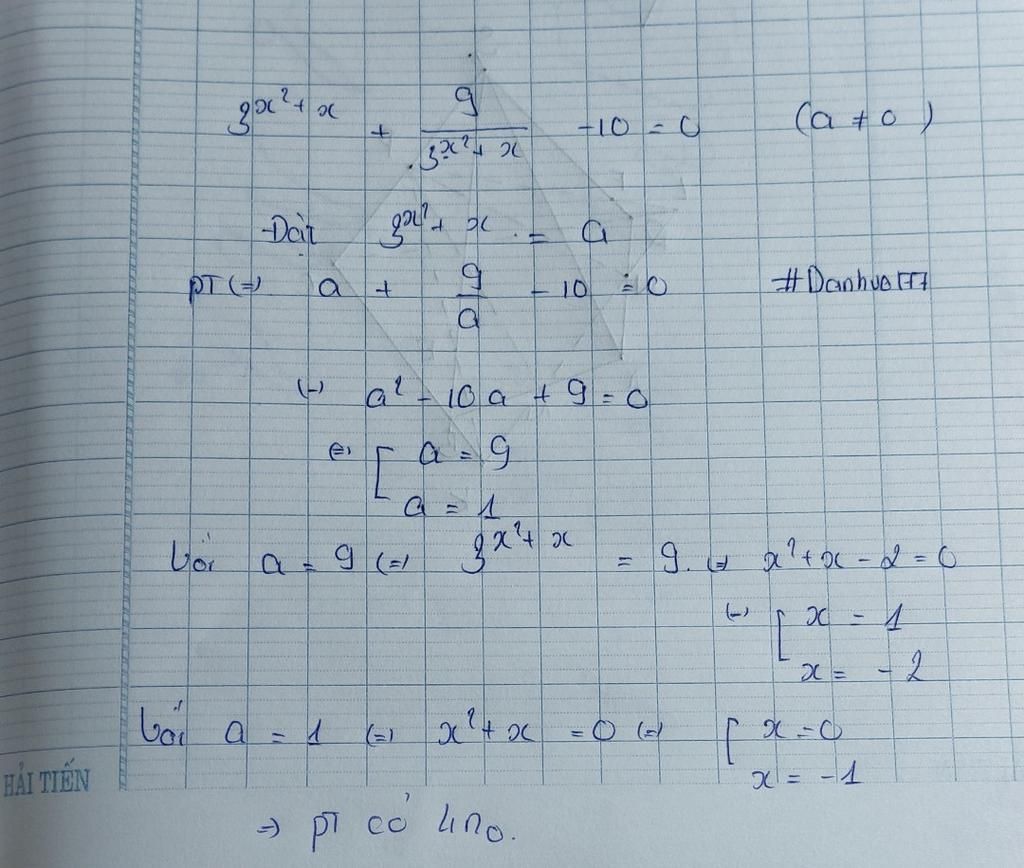 3^{x²+x} + 9/3^{x²+x} -10 = 0 (a ≠ 0)
Đặt 3^{x²+x} = a
PT (=) a + 9/a - 10 = 0 #Danhvo177
(=) a² - 10a + 9 = 0
(=) [ a = 9
a = 1
Với a = 9 (=) 3^{x²+x} = 9. (=) x²+x - 2 = 0
(=) [ x = 1
x = -2
Với a = 1 (=) x²+x = 0 (=) [ x = 0
x = -1
HẢI TIẾN
=> PT có 4 n₀.